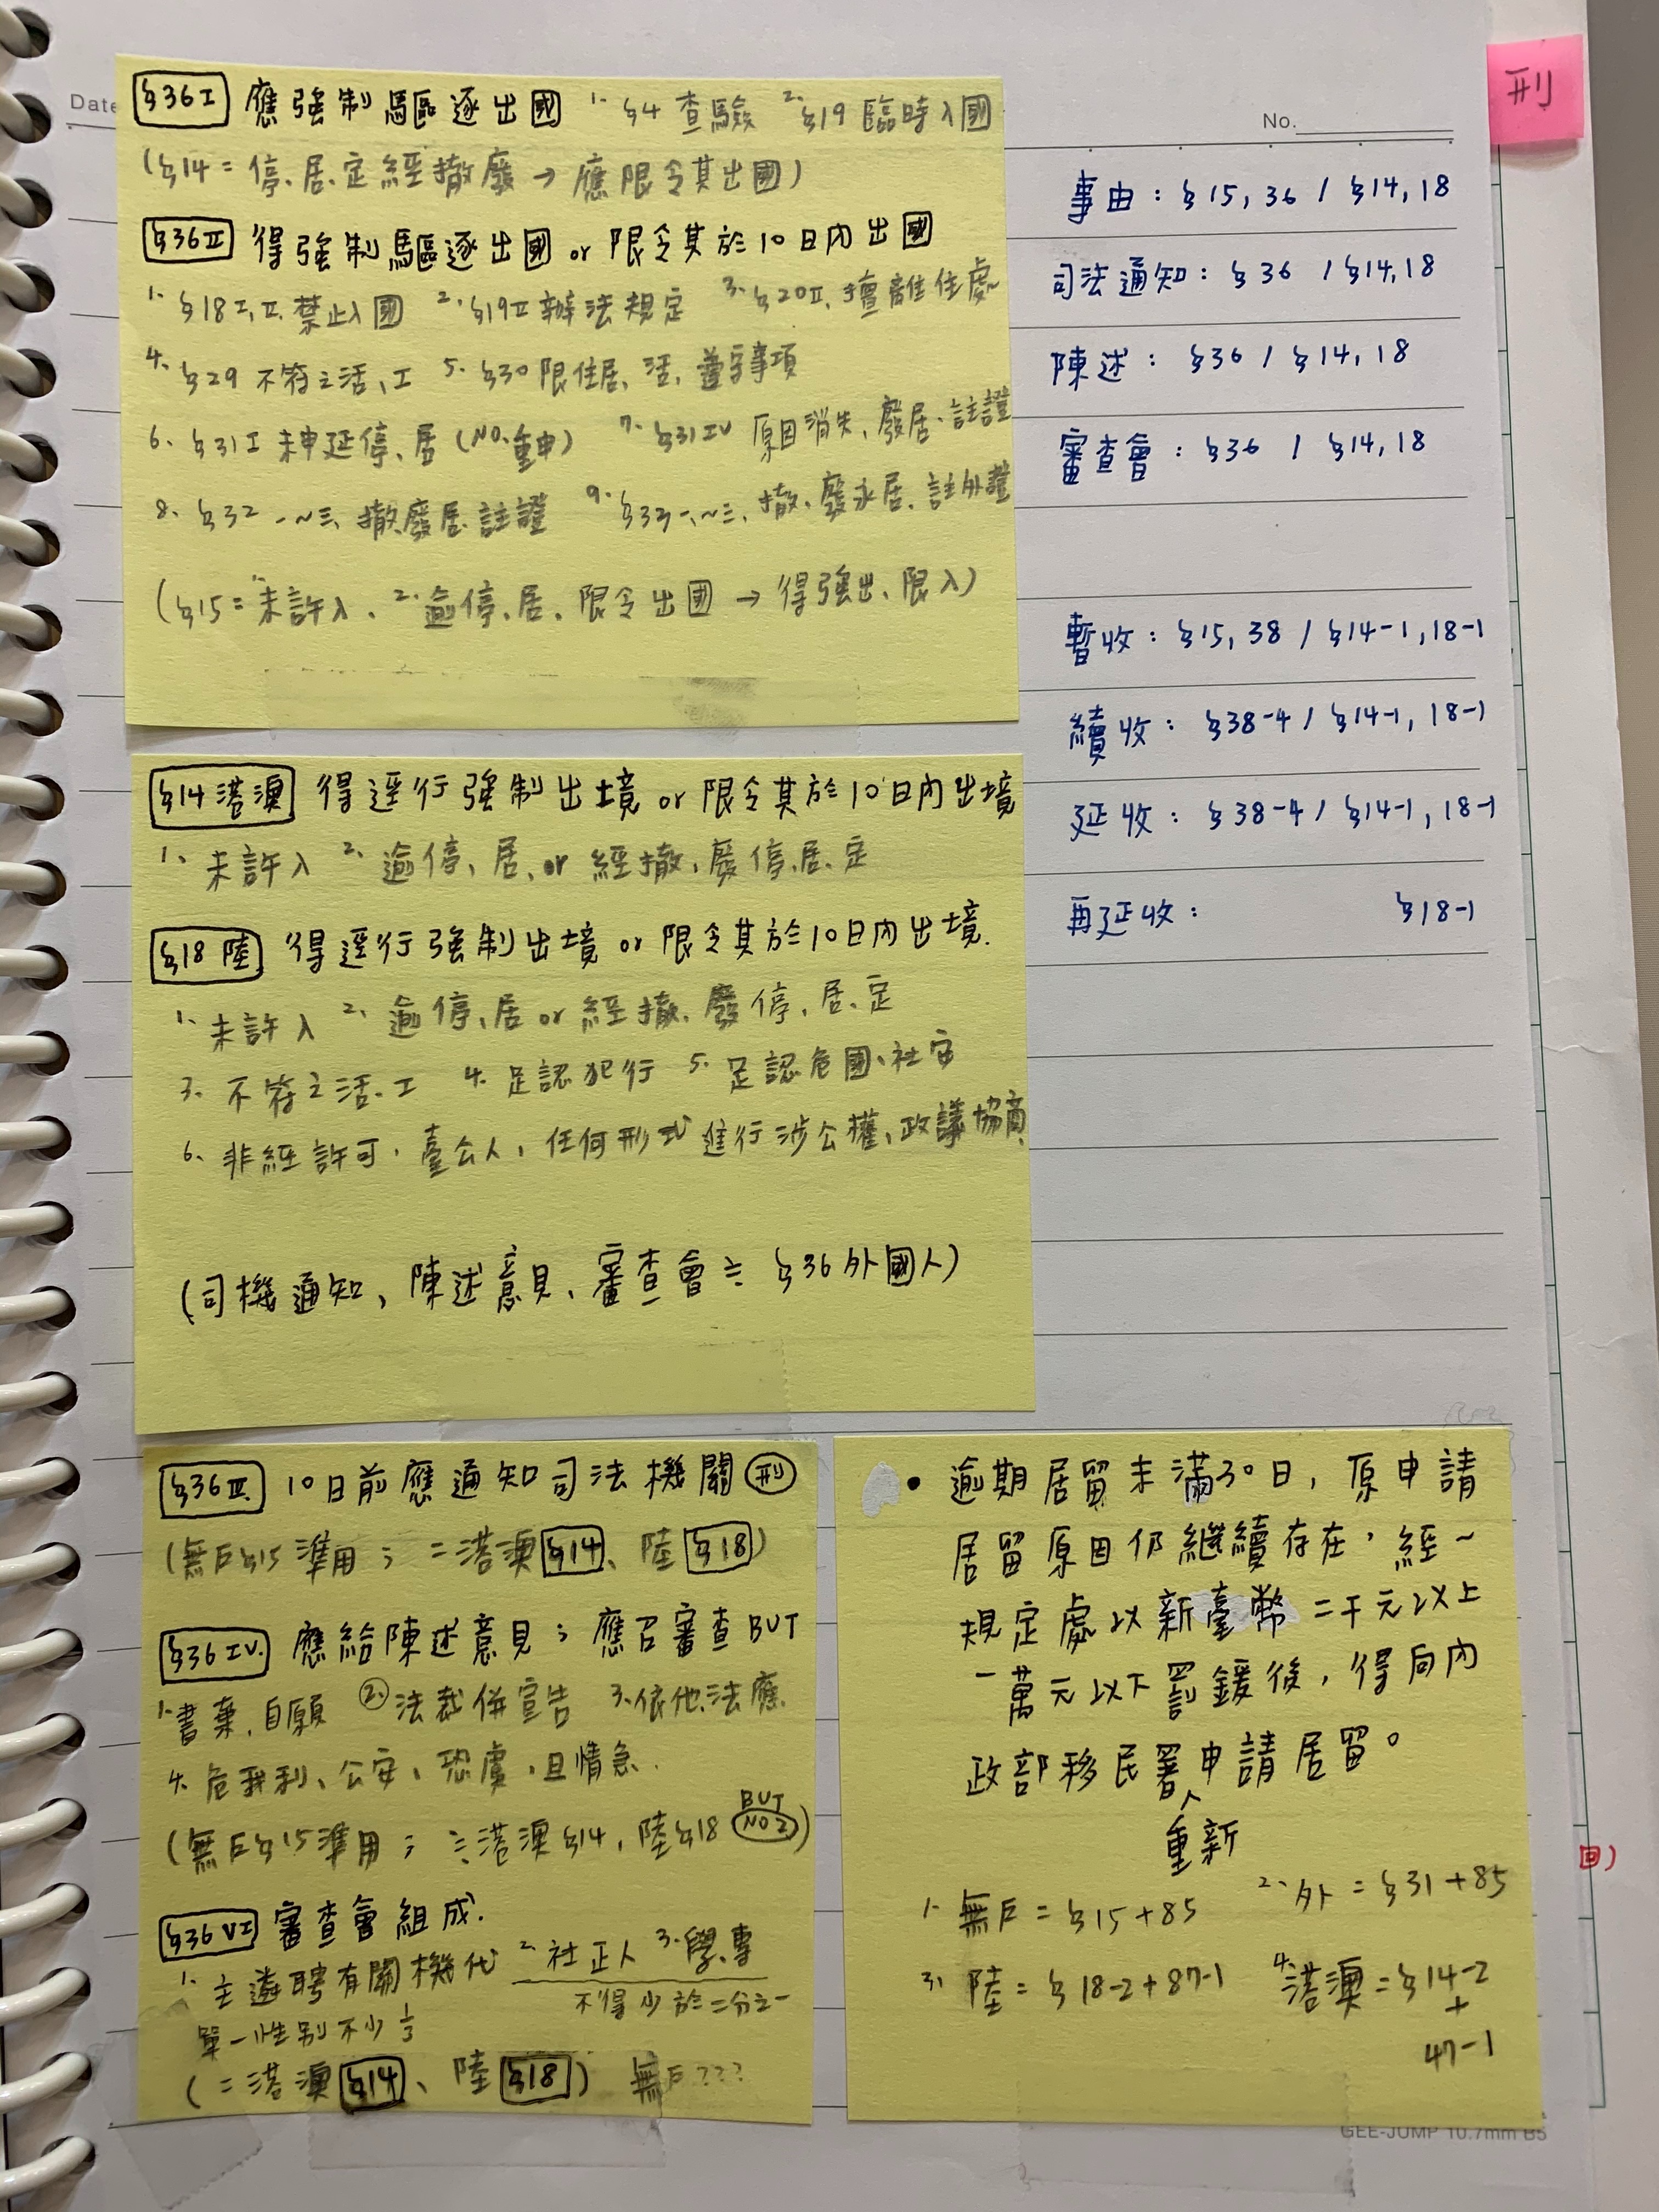 Date
刑
No.
§36I 應強制驅逐出國 1. §4 查驗 2. §19 臨時入國
(§14 = 停、居、定經撤廢 → 應限令其出國)
§36II 得強制驅逐出國 or 限令其於10日內出國
1. §18I、II 禁止入國 2. §19II 辦法規定 3. §20II、擅離住處
4. §29 不符之活、工 5. §30 限住居、活、遵守事項
6. §31I 未申延停、居 (NO.重申) 7. §31IV 原因消失、廢居、註證
8. §32 一~三、撤廢居、註證 9. §33一、~三、撤、廢永居、註外證
(§15 = 1. 未許入、2. 逾停、居、限令出國 → 得強出、限入)
事由：§15, 36 / §14, 18
司法通知：§36 / §14, 18
陳述：§36 / §14, 18
審查會：§36 / §14, 18
暫收：§15, 38 / §14-1, 18-1
續收：§38-4 / §14-1, 18-1
延收：§38-4 / §14-1, 18-1
再延收： §18-1
§14港澳 得逕行強制出境 or 限令其於10日內出境
1. 未許入 2. 逾停、居、or 經撤、廢停、居、定
§18 陸 得逕行強制出境 or 限令其於10日內出境.
1. 未許入 2. 逾停、居 or 經撤、廢停、居、定
3. 不符之活、工 4. 足認犯行 5. 足認危國、社安
6. 非經許可，臺公人，任何形式進行涉公權、政議協商
(司機通知、陳述意見、審查會 ≒ §36 外國人)
§36III 10日前應通知司法機關 刑
(無戶§15 準用； = 港澳§14、陸§18)
§36IV. 應給陳述意見；應召審查 BUT
1. 書棄、自願 2. 法裁併宣告 3. 依他法應
4. 危我利、公安、恐虞，且情急.
(無戶§15準用； ≒港澳§14, 陸§18 BUT NO 2)
§36VI 審查會組成.
1. 主遴聘有關機代 2. 社正人 3. 學、專
不得少於二分之一
單一性別不少 1/3
( = 港澳§14、陸§18) 無戶???
• 逾期居留未滿30日，原申請
居留原因仍繼續存在，經~
規定處以新臺幣二千元以上
一萬元以下罰鍰後，得向內
政部移民署申請居留。
重新
1. 無戶 = §15 + 85 2. 外 = §31 + 85
3. 陸 = §18-2 + 87-1 4. 港澳 = §14-2
+
47-1
回)
GEE-JUMP 10.7mm B5